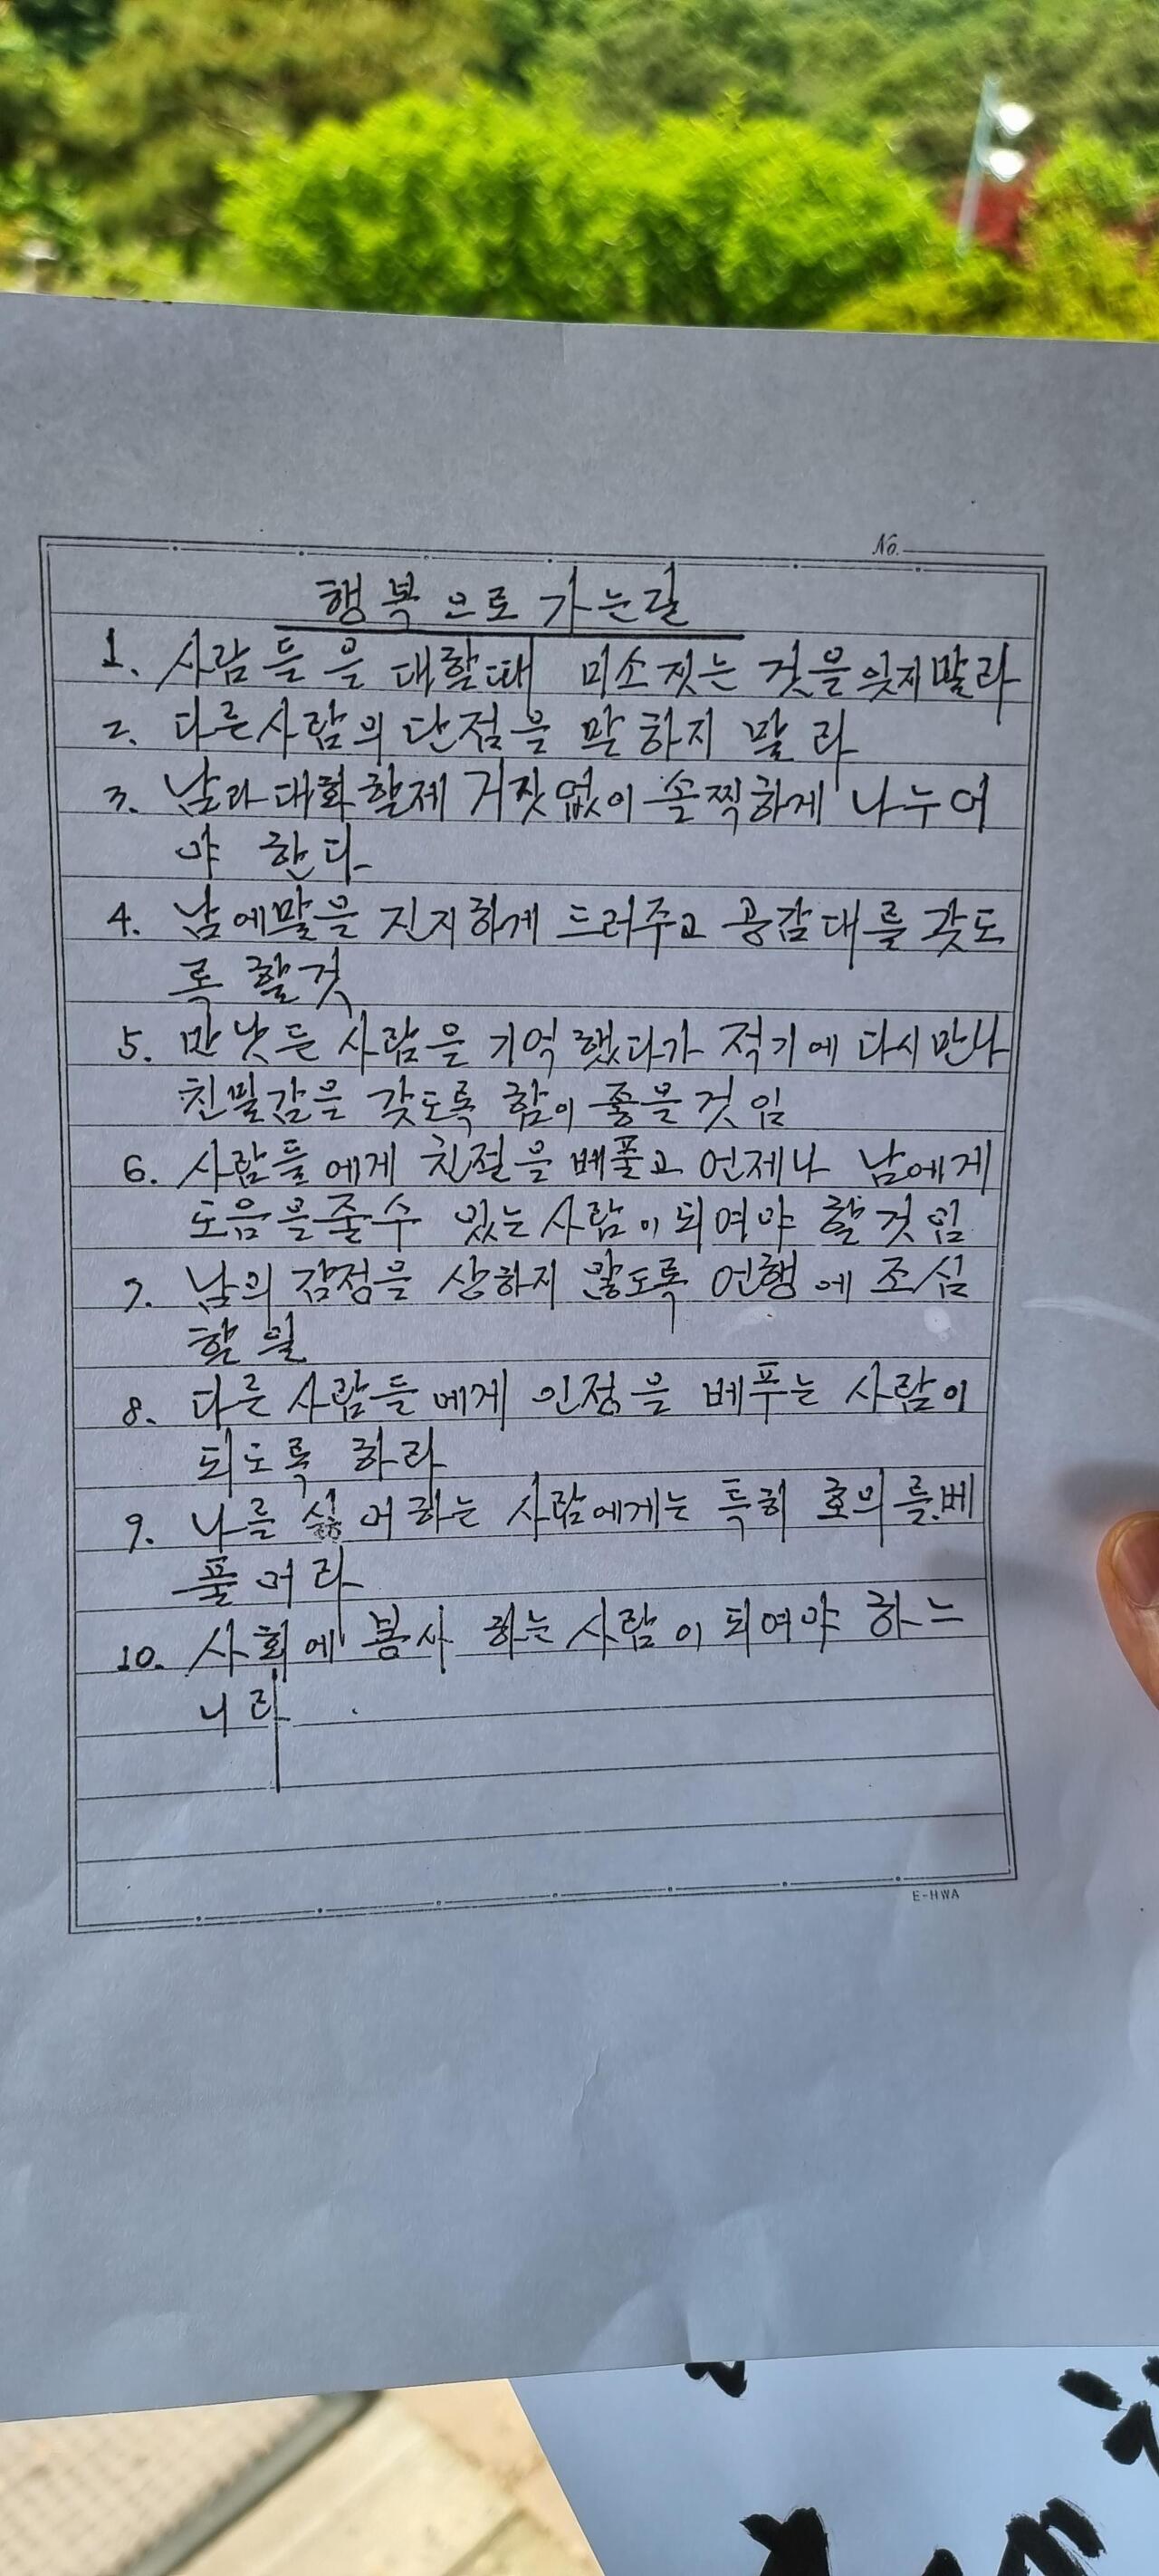 No.
행복으로 가는길
1. 사람들을 대할때 미소짓는 것을 잊지말라
2. 다른사람의 단점을 말하지 말라
3. 남과대화할제 거짓없이 솔찍하게 나누어
야 한다
4. 남에말을 진지하게 드러주고 공감대를 갖도
록 할것
5. 만낫든 사람을 기억했다가 적기에 다시만나
친밀감을 갖도록 함이 좋을것임
6. 사람들에게 친절을 베풀고 언제나 남에게
도음을줄수 있는사람이되여야 할것임
7. 남의 감정을 상하지 않도록 언행에 조심
할
8. 다른 사람들에게 인정을 베푸는 사람이
되도록 하라
9. 나를 싫어하는 사람에게는 특히 호의를베
풀어라
10. 사회에 봉사 하는사람이되여야 하느
니라
E-HWA